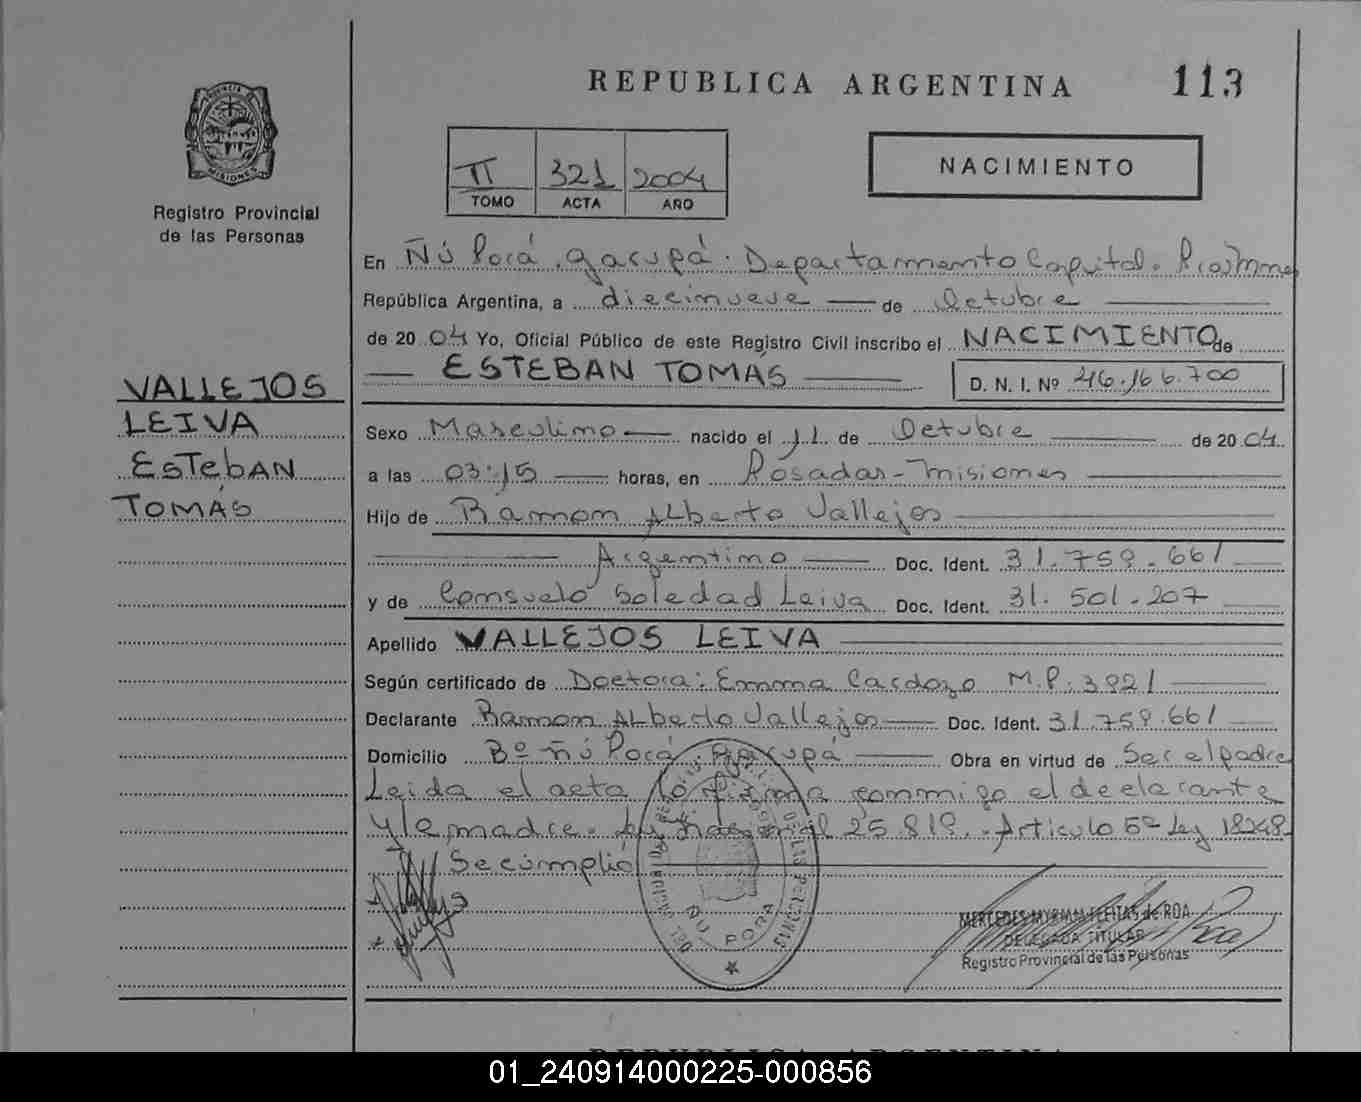 REPUBLICA ARGENTINA 113
PROVINCIA DE
MISIONES
Registro Provincial
de las Personas
II 321 2004
TOMO ACTA AÑO
NACIMIENTO
VALLEJOS
LEIVA
ESTEBAN
TOMÁS
En Ñú Porá, Garupá. Departamento Capital.
República Argentina, a diecinueve de Octubre
de 2004 Yo, Oficial Público de este Registro Civil inscribo el NACIMIENTO de
ESTEBAN TOMÁS D. N. I. Nº 46.166.700
Sexo Masculino nacido el 11 de Octubre de 2004
a las 03:15 horas, en Posadas - Misiones
Hijo de Ramon Alberto Vallejos
Argentino Doc. Ident. 31.759.661
y de Consuelo Soledad Leiva Doc. Ident. 31.501.207
Apellido VALLEJOS LEIVA
Según certificado de Doctora: Emma Cardozo M.P. 3921
Declarante Ramon Alberto Vallejos Doc. Ident. 31.759.661
Domicilio Bº Ñú Porá Garupá Obra en virtud de Ser el padre
Leida el acta la firma conmigo el declarante
y la madre. Ley Nacional 25.819. Articulo 5º Ley 18248
Se cumplió
ÑU PORA
MERCEDES MYRIAM FLEITAS de ROA
DELEGADA TITULAR
Registro Provincial de las Personas
REPUBLICA ARGENTINA
01_240914000225-000856